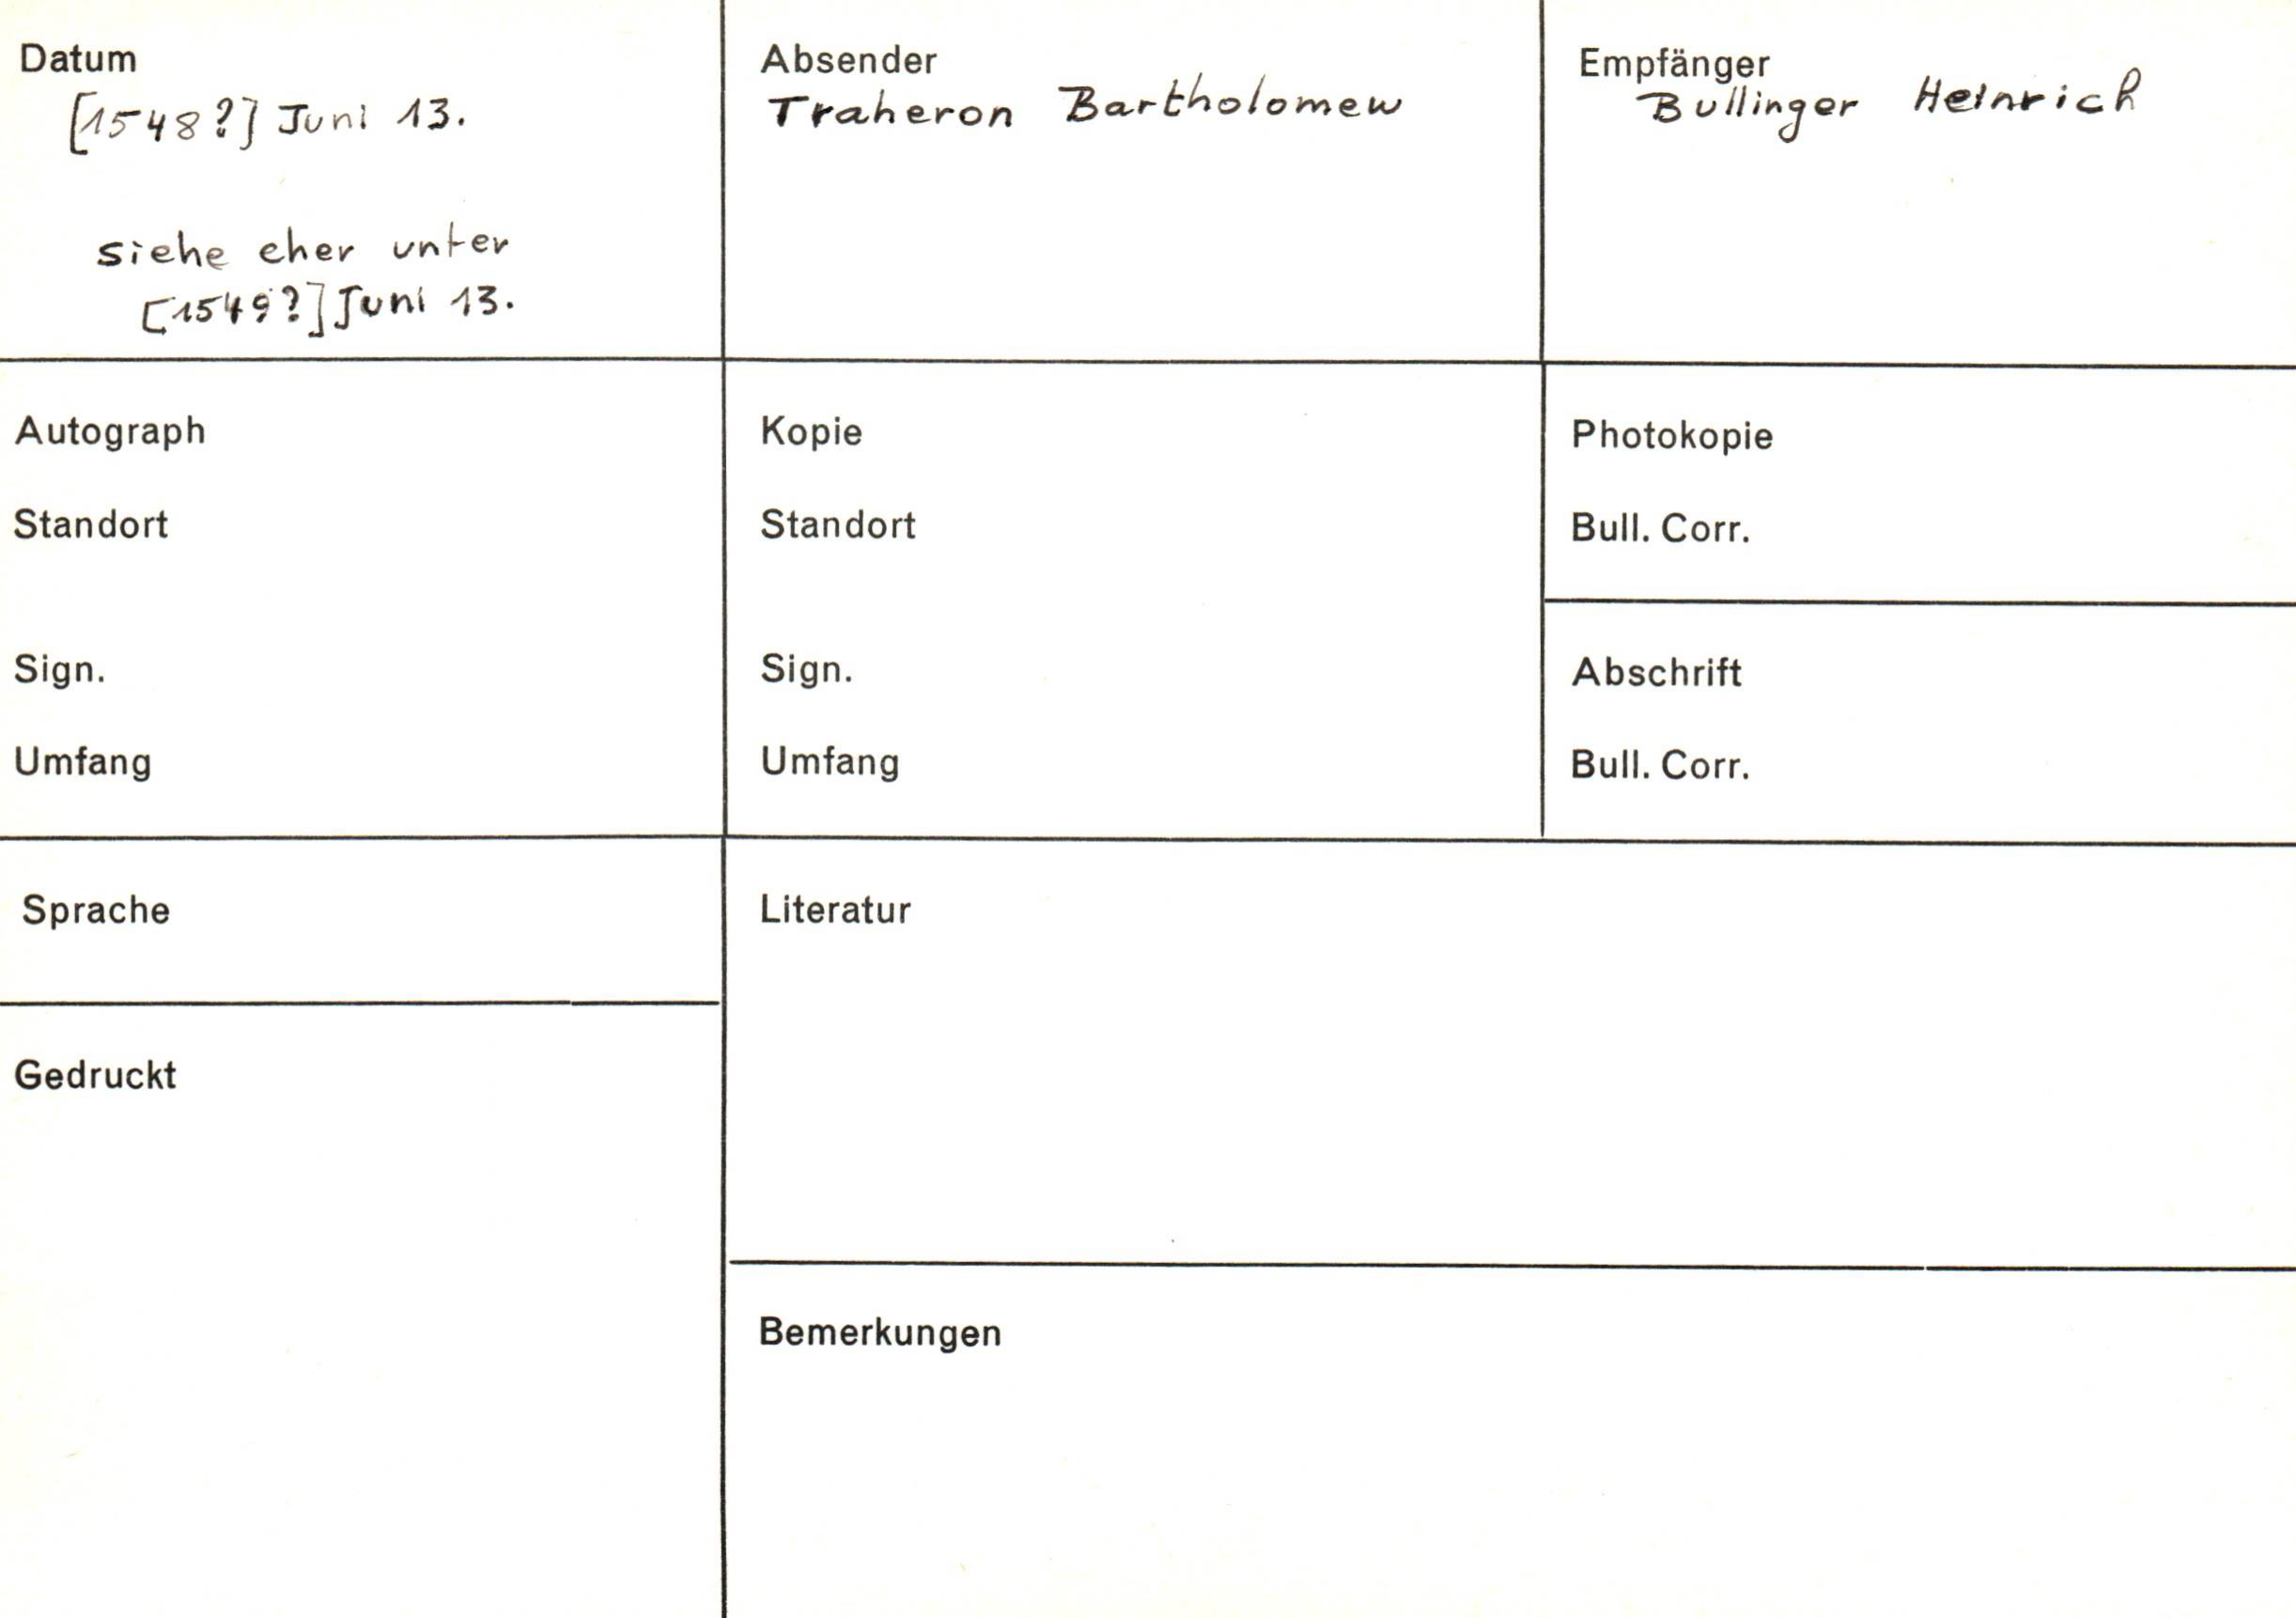 Datum
[1548?] Juni 13.
siehe eher unter
[1549?] Juni 13.
Absender
Traheron Bartholomew
Empfänger
Bullinger Heinrich
Autograph
Standort
Sign.
Umfang
Kopie
Standort
Sign.
Umfang
Photokopie
Bull. Corr.
Abschrift
Bull. Corr.
Sprache
Gedruckt
Literatur
Bemerkungen